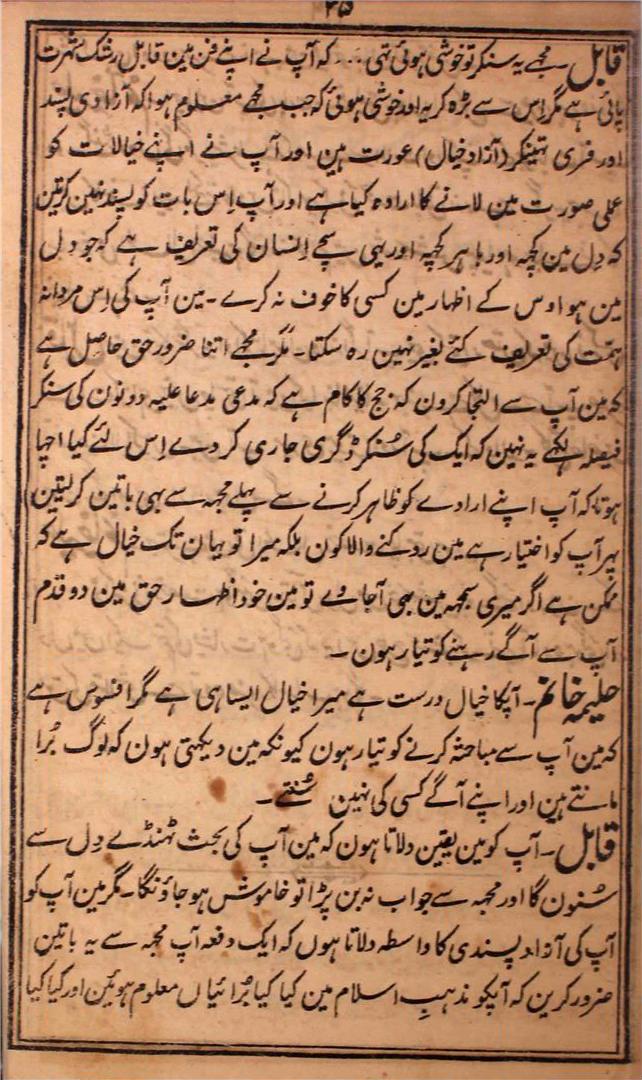 ۴۵
قابل ۔ مجھے یہ سنکر تو خوشی ہوئی تہی ... کہ آپ نے اپنے فن مین قابل رشک شہرت
پائی ہے مگر اِس سے بڑہ کر یہ اور خوشی ہوئی کہ جب مجھے معلوم ہوا کہ آزادی پسند
اور فری تہینکر (آزاد خیال) عورت ہین اور آپ نے اپنے خیالات کو
عملی صورت مین لانے کا ارادہ کیا ہے اور آپ اِس بات کو پسند نہین کرتین
کہ دِل مین کچہہ اور باہر کچہہ اور یہی سچے اِنسان کی تعریف ہے کہ جو دِل
مین ہو اوس کے اظہار مین کسی کا خوف نہ کرے ۔ مین آپ کی اِس مردانہ
ہمت کی تعریف کئے بغیر نہین رہ سکتا ۔ مگر مجھے اتنا ضرور حق حاصل ہے
کہ مین آپ سے التجا کرون کہ جج کا کام ہے کہ مدعی مدعا علیہ دونون کی سنکر
فیصلہ لکہے یہ نہین کہ ایک کی سُنکر ڈگری جاری کر دے اِس لئے کیا اچہا
ہوتا کہ آپ اپنے ارادے کو ظاہر کرنے سے پہلے مجہہ سے بہی باتین کر لیتین
پہر آپ کو اختیار ہے مین روکنے والا کون بلکہ میرا تو یہان تک خیال ہے کہ
ممکن ہے اگر میری سمجہہ مین بہی آجاوے تو مین خود اظہار حق مین دو قدم
آپ سے آگے رہنے کو تیار ہون ۔
حلیمہ خانم ۔ آپکا خیال درست ہے میرا خیال ایسا ہی ہے مگر افسوس ہے
کہ مین آپ سے مباحثہ کرنے کو تیار ہون کیونکہ مین دیکہتی ہون کہ لوگ بُرا
مانتے ہین اور اپنے آگے کسی کی نہین سُنتے ۔
قابل ۔ آپ کو مین یقین دلاتا ہون کہ مین آپ کی بحث ٹہنڈے دِل سے
سُنون گا اور مجہہ سے جواب نہ بن پڑا تو خاموش ہو جاؤنگا ۔ مگر مین آپ کو
آپ کی آزاد پسندی کا واسطہ دلاتا ہوں کہ ایک دفعہ آپ مجہہ سے یہ باتین
ضرور کرین کہ آپکو مذہبِ اسلام مین کیا کیا بُرائیاں معلوم ہوئین اور کیا کیا